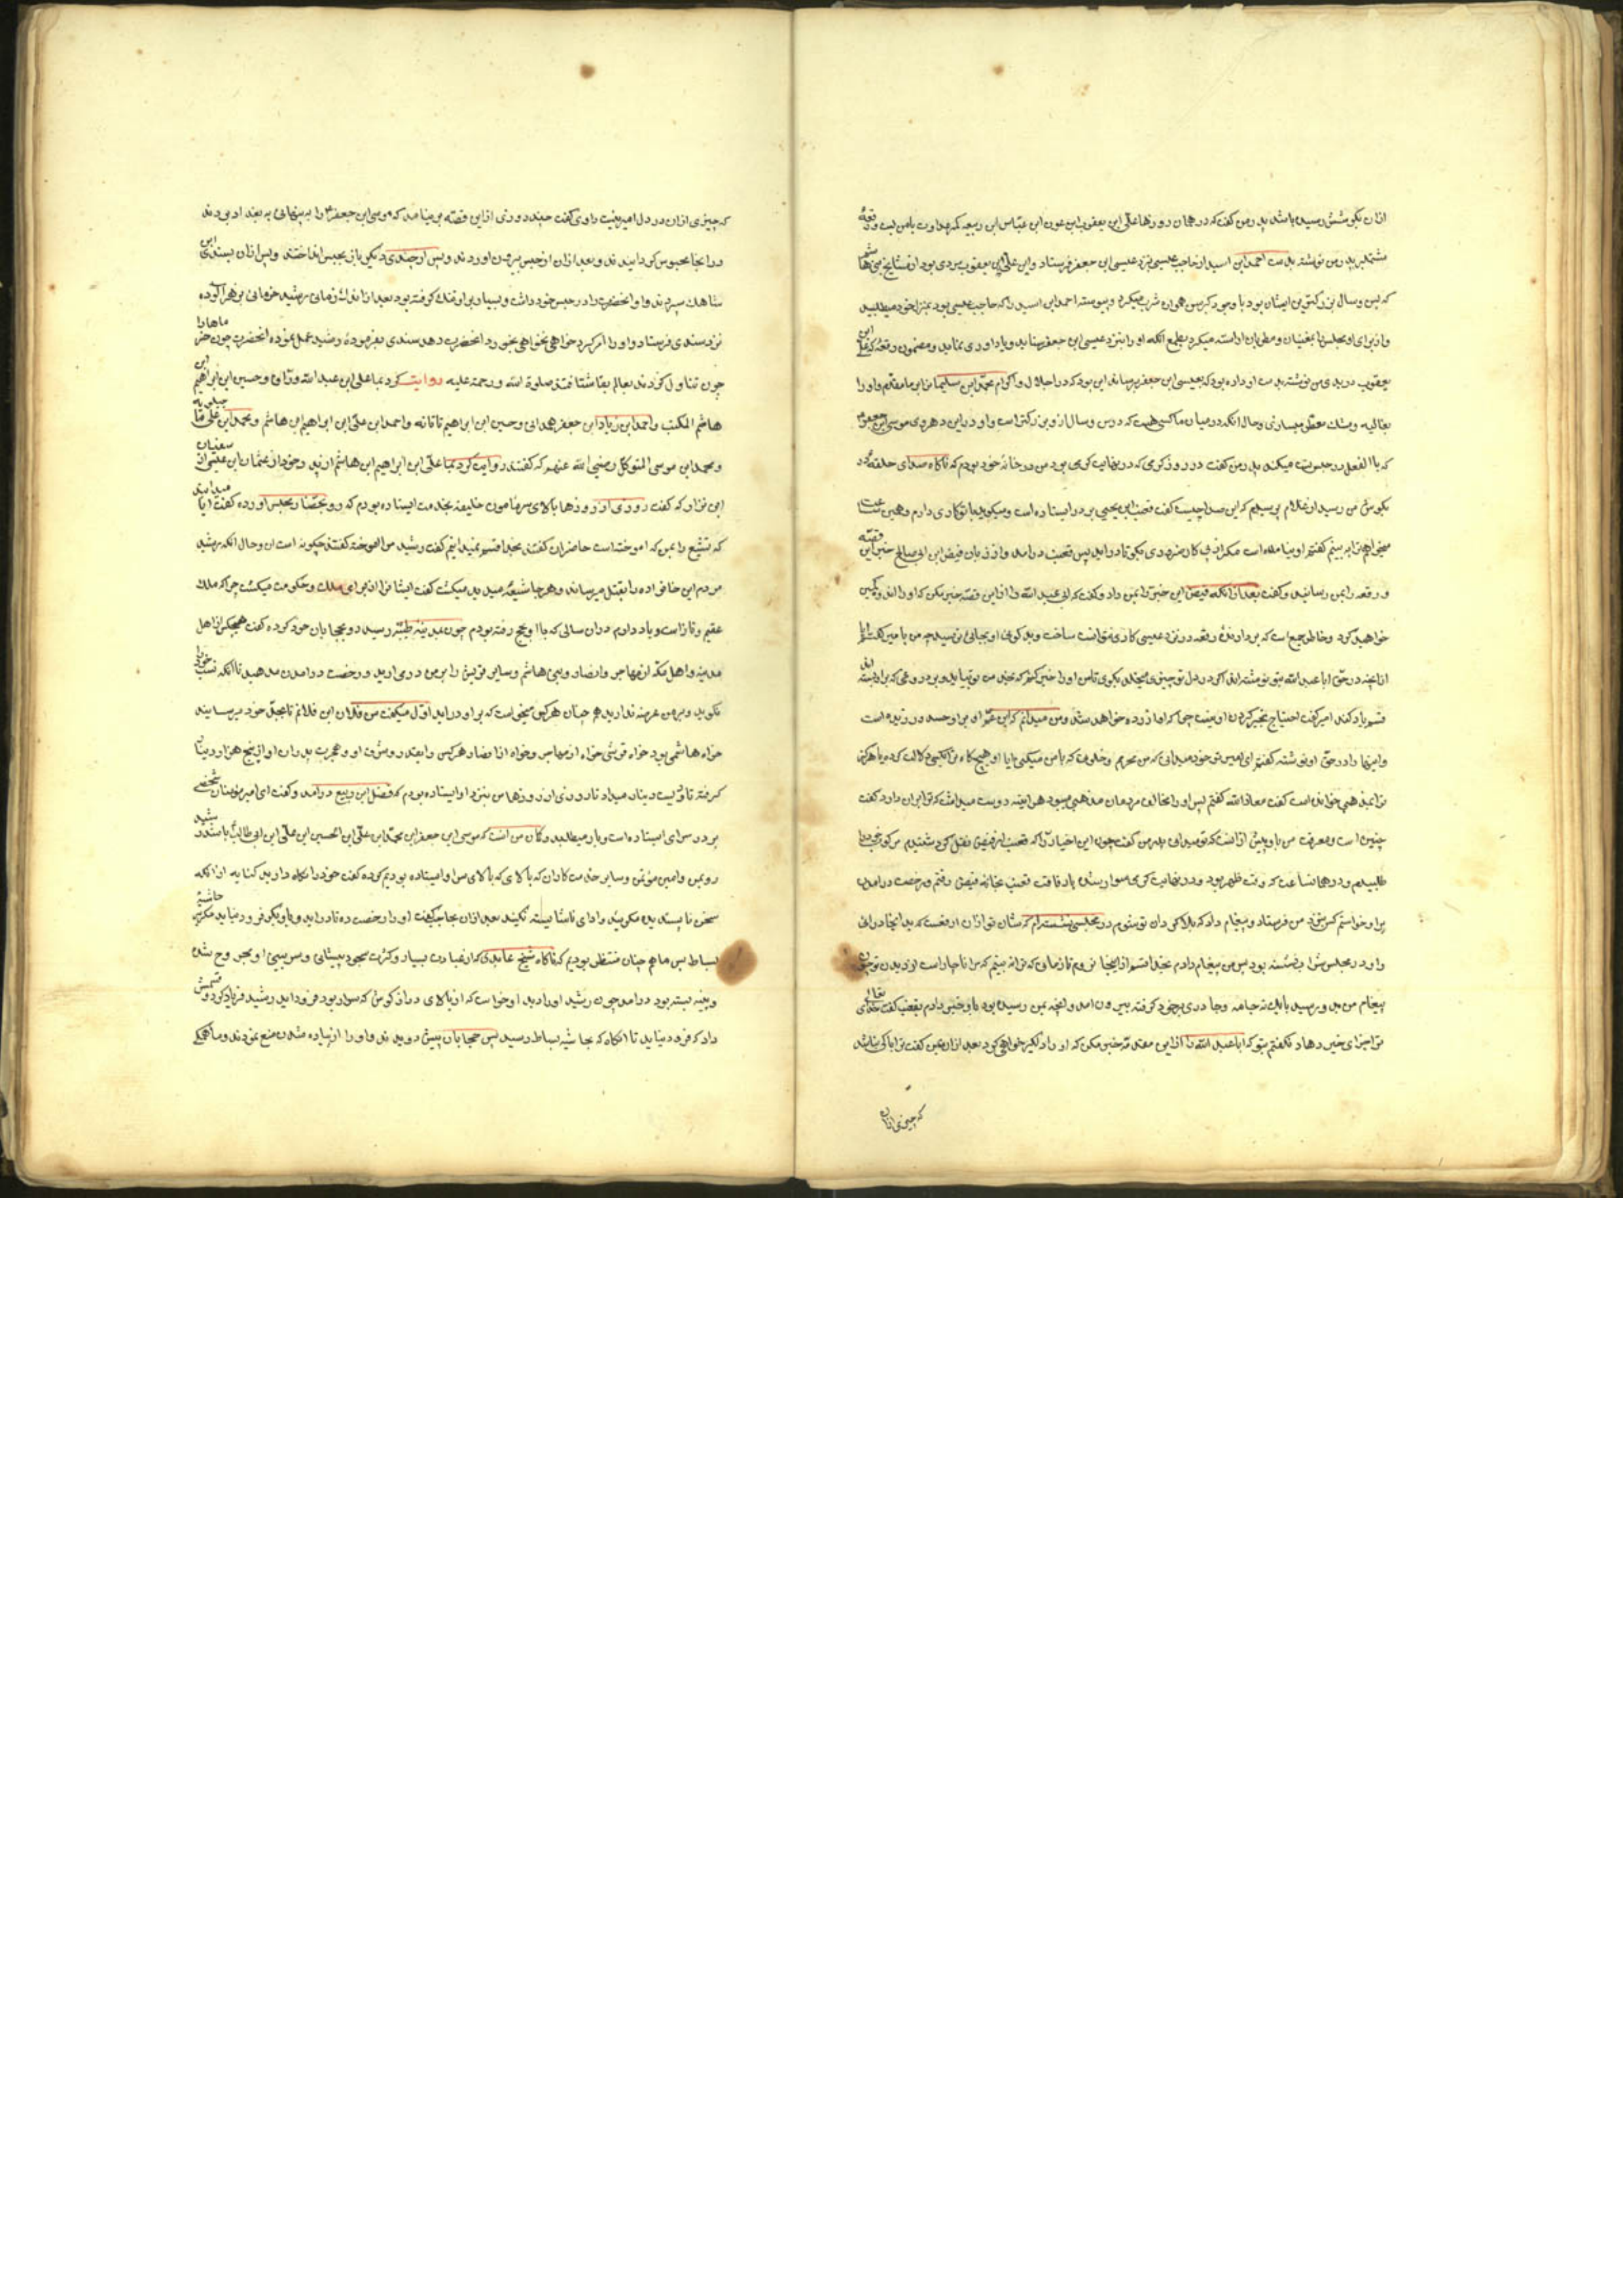 ازان بگوشش رسیده باشد پدر من گفت که در همان روزها علی ابن یعقوب ابن عون ابن عباس ابن ربیعه که عداوت بامن داشت رقعهٔ
مشتمل بر پدر من نوشته بدست احمد ابن اسید از حاجب عیسی نزد عیسی ابن جعفر فرستاد و این علی ابن یعقوب مردی بود از مشایخ بنی هاشم
که بس و سال بزرگترین ایشان بود با وجود کبر سن همان شرب میکرد و پیوسته احمد ابن اسید را که حاجب عیسی بود بمنزل خود میطلبید
و از برای او مجلس با مغنیان و مطربان اراسته میکرد بطمع انکه او را بنزد عیسی ابن جعفر بنماید و یاداوری نماید و مضمون رقعهٔ که علی ابن
یعقوب در بدی من نوشته بدست او داده بود که بعیسی ابن جعفر برساند این بود که در اجلال و اکرام محمد ابن سلیمان را بر ما مقدم و او را
بغالیه و مشک معطر میسازی و حال انکه در میان ما کسی هست که در سن و سال از و بزرگتر است و او در این دهر دی موسی ابن جعفر
که باالفعل در حبس تست میکند پدر من گفت در روز گرمی که در نهایت گرمی بود من در خانهٔ خود بودم که ناگاه صدای حلقهٔ در
بگوش من رسید از غلام پرسیدم که این صدا چیست گفت قعنب ابن یحیی بر در ایستاده است و میگوید باتو کاری دارم و همین ساعت
میخواهم ترا به بینم گفتم او نیامده است مگر از پی کار ضروری بگو تا در اید پس قعنب در امد و از زبان فیض ابن ابی صالح خبر این قصه
و رقعه را بمن رسانید و گفت بعد از انکه فیض این خبر را بمن داد و گفت که ابی عبد الله را از این قصه خبر مکن که او را اندوهگین
خواهید کرد و خاطر جمع است که بر دارندهٔ رقعه در نزد عیسی کاری نتوانست ساخت و بدگوئی او بجائی نرسید چه من با امیر گفتم ایا
از انچه در حق ابا عبد الله بتو نوشته اند اگر در دل تو چیزی میخلد بگوی تا من او را خبر کنم که بخدمت تو بیاید و بر دروغی که براو بسته اند
قسم یاد کند امیر گفت احتیاج بخبر کردن او نیست چرا که او ازرده خواهد شد و من میدانم که ابن عم او بر او حسد ورزیده است
و اینها را در حق او نوشته گفتم ای امیر تو خود میدانی که من محرم و خلوت که با من میکنی ایا او هیچکاه مرا بکسی دلالت کرده یا هرگز
مرا بمذهبی خوانده است گفت معاذ الله گفتم پس او را مخالف مردمان مذهبی میبود هر اینه دوست میداشت که ترا بران دارد گفت
چنین است و معرفت من باو پیش از انست که تو میدانی پدر من گفت چون این اخبار را که قعنب از فیض نقل کرد شنیدم مرکوب خود را
طلبیدم و در همانساعت که وقت ظهر بود و در نهایت گرمی سوار شده با رفاقت قعنب بخانه فیض رفتم و رخصت در امدن
بر او خواستم کس بنزد من فرستاد و پیغام داد که بلا گردان تو شوم در مجلسی نشسته ام که شان تو ازان ارفعست که بدانجا درائی
و او در مجلس شراب نشسته بود پس من پیغام دادم بخدا قسم از اینجا نروم تا زمانی که ترا نه بینم که مرا ناچار است از دیدن تو چون
پیغام من بدو رسید با یک ته جامه و چادری بر خود گرفته بیرون امد و انچه بمن رسیده بود باو خبر دادم بقعنب گفت خدای تعالی
ترا جزای خیر دهاد نگفتم بتو که ابا عبد الله را از این مقدمه خبر مکن که او را دلگیر خواهی کرد بعد ازان بمن گفت ترا باکی نباشد
که چیزی ازان
که چیزی ازان در دل امیر نیست راوی گفت چند روزی از این قصه بر نیامد که موسی ابن جعفر را به پنهانی به بغداد بردند
در انجا محبوس گردانیدند و بعد ازان از حبس بیرون اوردند و پس از چندی دیگر باز بحبس انداختند و پس ازان بسندی ابن
شاهک سپردند و او انحضرت را در حبس خود داشت و بسیار بر او تنگ گرفته بود بعد از انکه زمانی رشید خرمائی بزهر الوده
نزد سندی فرستاد و او را امر کرد خواهی نخواهی بخورد انحضرت دهد سندی بفرمودهٔ رشید عمل نموده انحضرت چون خرماها را
چون تناول کردند بعالم بقا شتافتند صلوة الله و رحمته علیه روایت کرد بما علی ابن عبد الله وراق و حسین ابن ابراهیم ابن
هاشم المکتب و احمد ابن زیاد ابن جعفر همدانی و حسین ابن ابراهیم تاتانه و احمد ابن علی ابن ابراهیم ابن هاشم و محمد ابن علی ماجیلویه
و محمد ابن موسی المتوکل رضی الله عنهم که گفتند روایت کرد بما علی ابن ابراهیم ابن هاشم از پدر خود از عثمان ابن عیسی از سفیان
ابن نزار که گفت روزی از روزها بالای سر مامون خلیفه بخدمت ایستاده بودم که رو بحضار مجلس اورده گفت ایا میدانید
که تشیع را بمن که اموخته است حاضران گفتند بخدا قسم نمیدانیم گفت رشید مرا اموخته گفتند چگونه است این و حال انکه رشید
مردم این خانواده را بقتل میرساند و هر جا شیعهٔ میدید میکشت گفت ایشانرا از برای ملک و حکومت میکشت چرا که ملک
عقیم و نازاست و یاد دارم دران سالی که با او بحج رفته بودم چون بمدینه طیبه رسید رو بحجابان خود کرده گفت هیچکس از اهل
مدینه و اهل مکه از مهاجر و انصار و بنی هاشم و سایر قریش را بر من در می ارید و رخصت در امدن مدهید تا انکه نسب خود را
نگوید و بر من عرضه ندارید هم چنان هر کس میخواست که بر او در اید اول میگفت من فلان ابن فلانم تا بجد خود میرسانیدند
خواه هاشمی بود خواه قریشی خواه از مهاجر و خواه از انصار هر کس را بقدر و شرف او و هجرت پدران او از پنج هزار دینار
گرفته تا دویست دینار میداد تا روزی از روزها من بنزد او ایستاده بودم که فضل ابن ربیع در امد و گفت ای امیر مومنان شخصی
بر در سرای ایستاده است و بار میطلبد و گمان من انست که موسی ابن جعفر ابن محمد ابن علی ابن الحسین ابن علی ابن ابی طالب باشد رشید
رو بمن و امین مؤتمن و سایر خدمت کاران که بالای که بالای سر او ایستاده بودیم کرده گفت خود را نگاه دارید کنایه از انکه
سخن ناپسندیده مگوئید و ادای ناشایسته نکنید بعد ازان بحاجب گفت او را رخصت ده تا در اید و باو بگو فرود نیاید مگر بر حاشیهٔ
بساط پس ما هم چنان منتظر بودیم که ناگاه شیخ عابدی که از عبادت بسیار و کثرت سجود پیشانی و سر بینی او مجروح شده
و پینه بسته بود در امد چون رشید او را دید او خواست که از بالای دراز گوش که سوار بود فرود اید رشید فریاد کرد و قسمش
داد که فرود میاید تا انگاه که بحاشیه بساط رسید پس حجابان پیش دویدند و او را از پیاده شدن منع نمودند و ما همگی